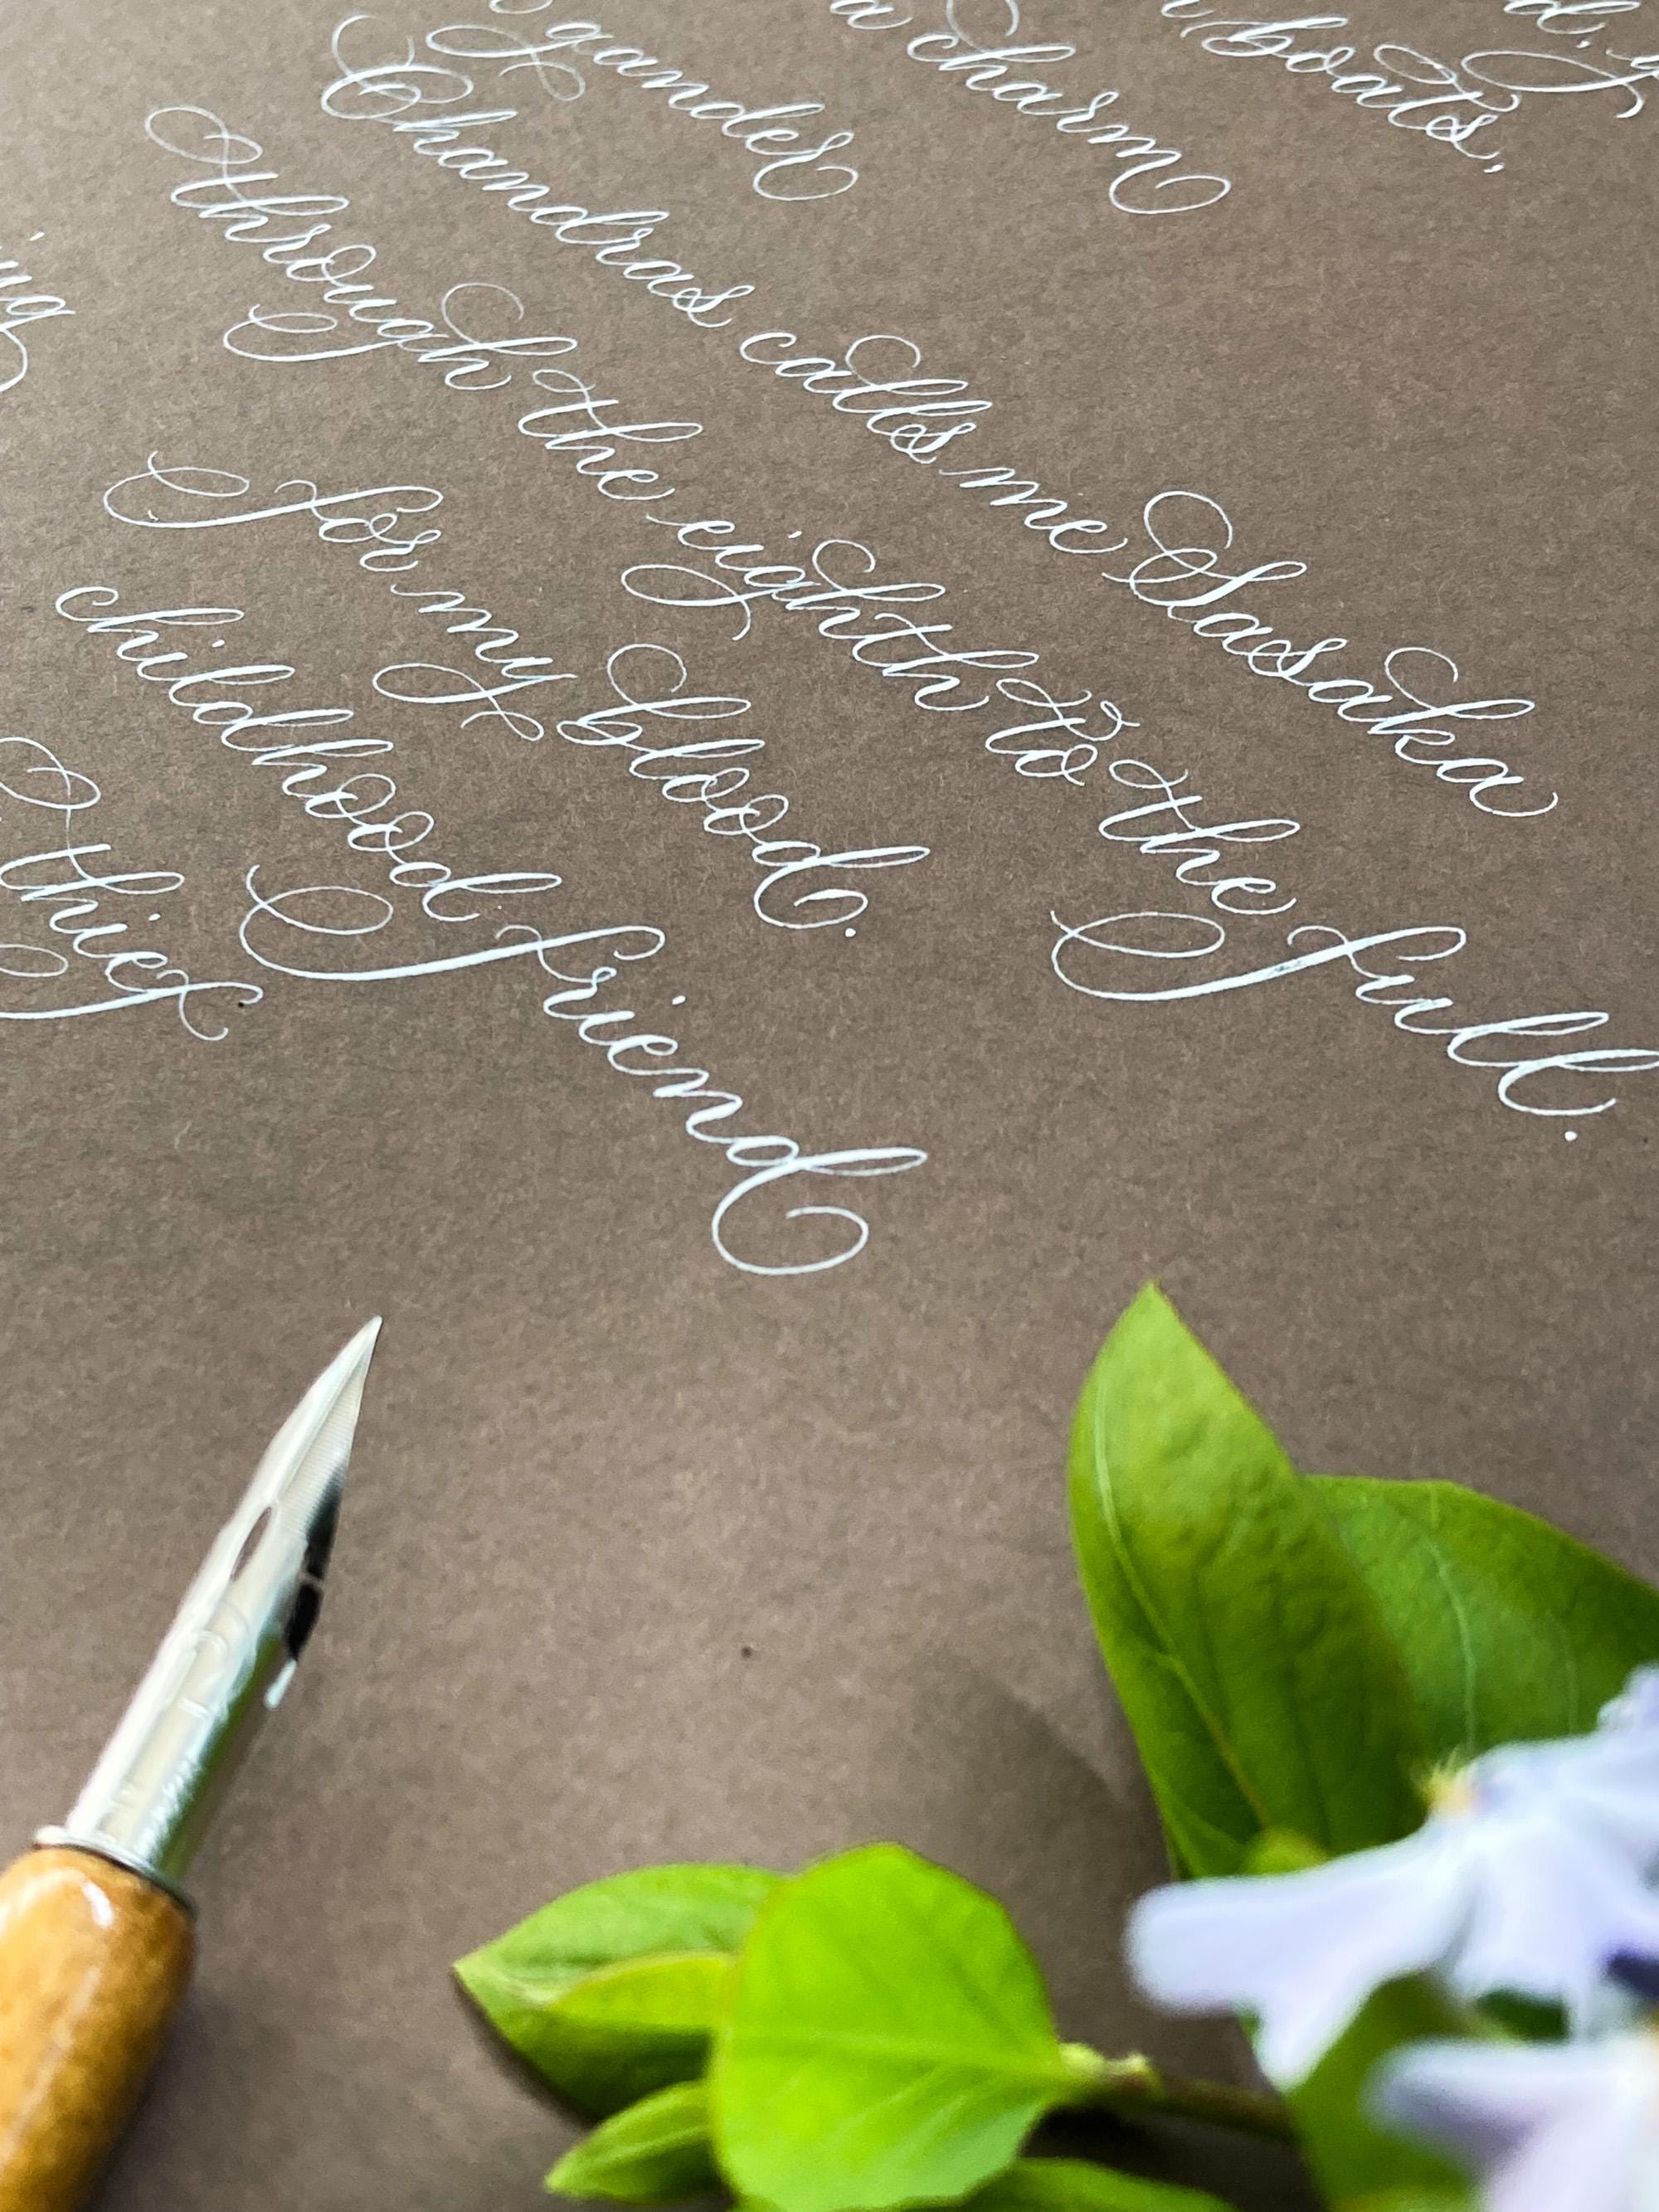 boats,
a charm
gander
Chandras calls me Sasaka
through the eighth to the full.
for my blood.
childhood friend
thief